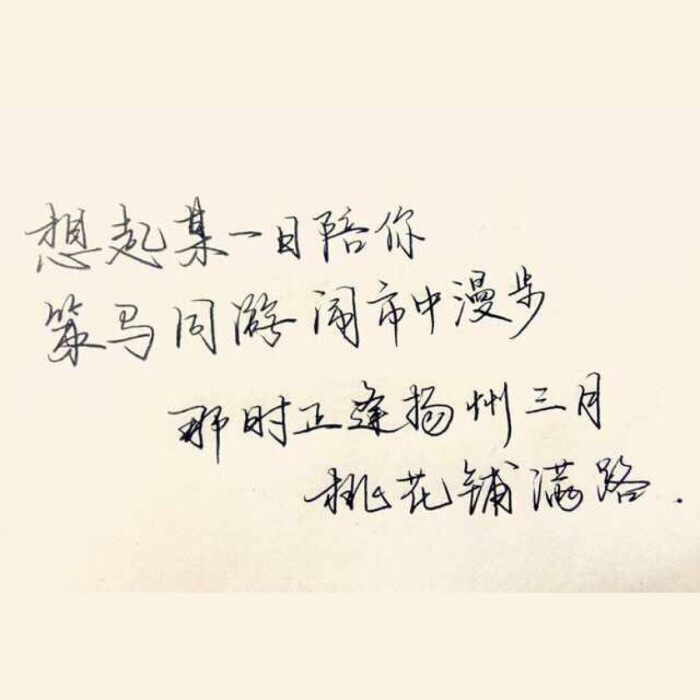 想起某一日陪你
策马同游闹市中漫步
那时正逢扬州三月
桃花铺满路.